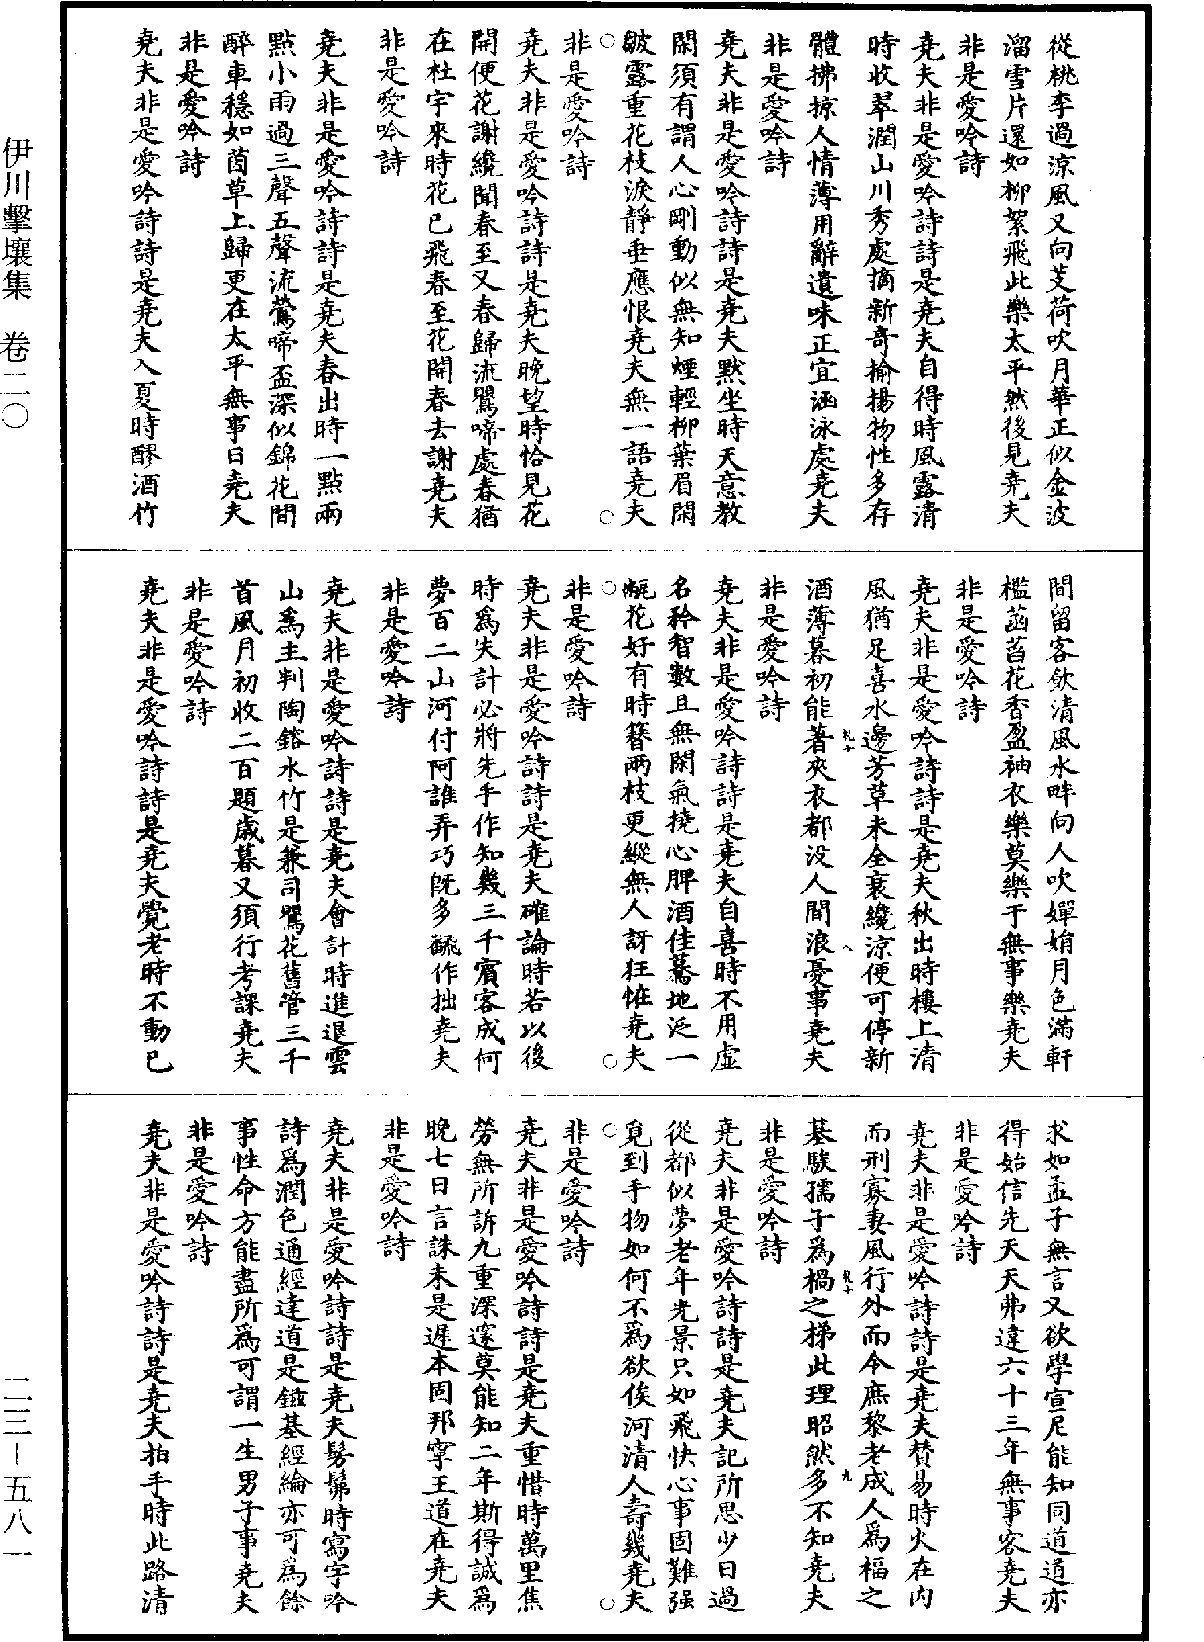 從桃李過涼風又向芰荷吹月華正似金波
溜雪片還如柳絮飛此樂太平然後見堯夫
非是愛吟詩
堯夫非是愛吟詩詩是堯夫自得時風露清
時收翠潤山川秀處摘新奇揄揚物性多存
體拂掠人情薄用辭遺味正宜涵泳處堯夫
非是愛吟詩
堯夫非是愛吟詩詩是堯夫默坐時天意教
閑須有謂人心剛動似無知煙輕柳葉眉閑
皺露重花枝淚靜垂應恨堯夫無一語堯夫
非是愛吟詩
堯夫非是愛吟詩詩是堯夫晚望時恰見花
開便花謝纔聞春至又春歸流鶯啼處春猶
在杜宇來時花已飛春至花開春去謝堯夫
非是愛吟詩
堯夫非是愛吟詩詩是堯夫春出時一點兩
點小雨過三聲五聲流鶯啼盃深似錦花間
醉車穩如茵草上歸更在太平無事日堯夫
非是愛吟詩
堯夫非是愛吟詩詩是堯夫入夏時醪酒竹
間留客飲清風水畔向人吹嬋娟月色滿軒
檻菡萏花香盈袖衣樂莫樂于無事樂堯夫
非是愛吟詩
堯夫非是愛吟詩詩是堯夫秋出時樓上清
風猶足喜水邊芳草未全衰纔涼便可停新
酒薄暮初能著夾衣都没人間浪憂事堯夫
非是愛吟詩
堯夫非是愛吟詩詩是堯夫自喜時不用虛
名矜智數且無閑氣撓心脾酒佳驀地泛一
甌花好有時簪兩枝更縱無人訝狂恠堯夫
非是愛吟詩
堯夫非是愛吟詩詩是堯夫確論時若以後
時爲失計必將先手作知幾三千賓客成何
夢百二山河付阿誰弄巧既多翻作拙堯夫
非是愛吟詩
堯夫非是愛吟詩詩是堯夫會計時進退雲
山爲主判陶鎔水竹是兼司鶯花舊管三千
首風月初收二百題歲暮又須行考課堯夫
非是愛吟詩
堯夫非是愛吟詩詩是堯夫覺老時不動已
求如孟子無言又欲學宣尼能知同道道亦
得始信先天天弗違六十三年無事客堯夫
非是愛吟詩
堯夫非是愛吟詩詩是堯夫賛易時火在内
而刑寡妻風行外而今庶黎老成人爲福之
基騃孺子爲禍之梯此理昭然多不知堯夫
非是愛吟詩
堯夫非是愛吟詩詩是堯夫記所思少日過
從都似夢老年光景只如飛快心事固難强
覓到手物如何不爲欲俟河清人壽幾堯夫
非是愛吟詩
堯夫非是愛吟詩詩是堯夫重惜時萬里焦
勞無所訴九重深邃莫能知二年斯得誠爲
晚七日言誅未是遲本固邦寧王道在堯夫
非是愛吟詩
堯夫非是愛吟詩詩是堯夫髣髴時寫字吟
詩爲潤色通經達道是鎡基經綸亦可爲餘
事性命方能盡所爲可謂一生男子事堯夫
非是愛吟詩
堯夫非是愛吟詩詩是堯夫拍手時此路清
伊川擊壤集 卷二〇
二三-五八一